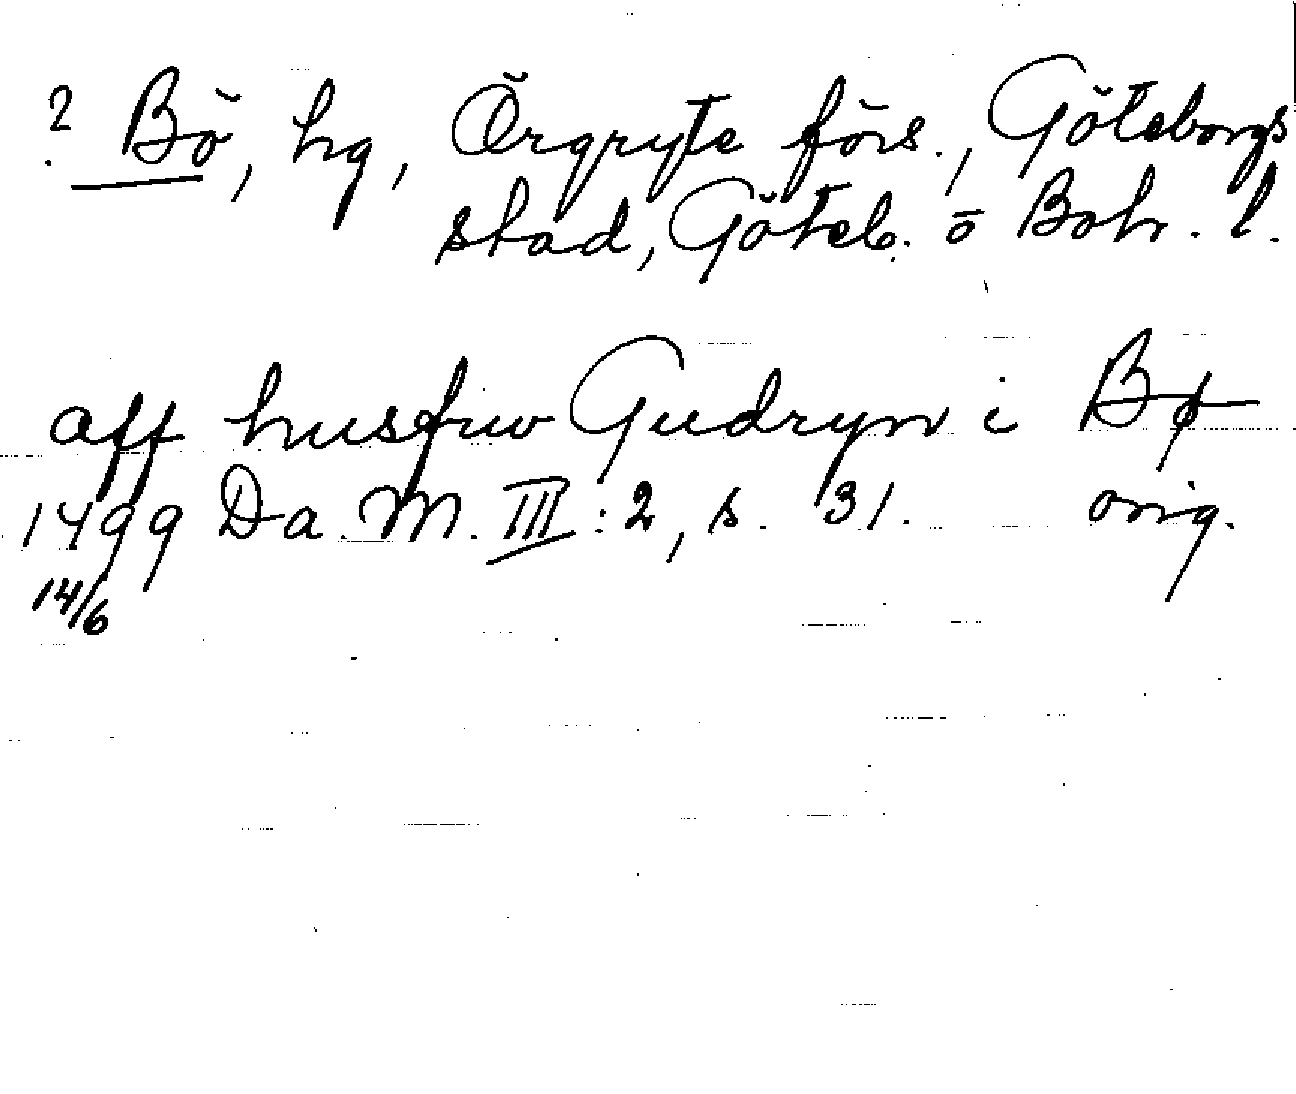 ? Bö, hg, Örgryte förs., Göteborgs
stad, Göteb. o Boh. l.
aff husfrw Gudryn i Bø
1499 Da. M. III:2, s. 31. orig.
14/6